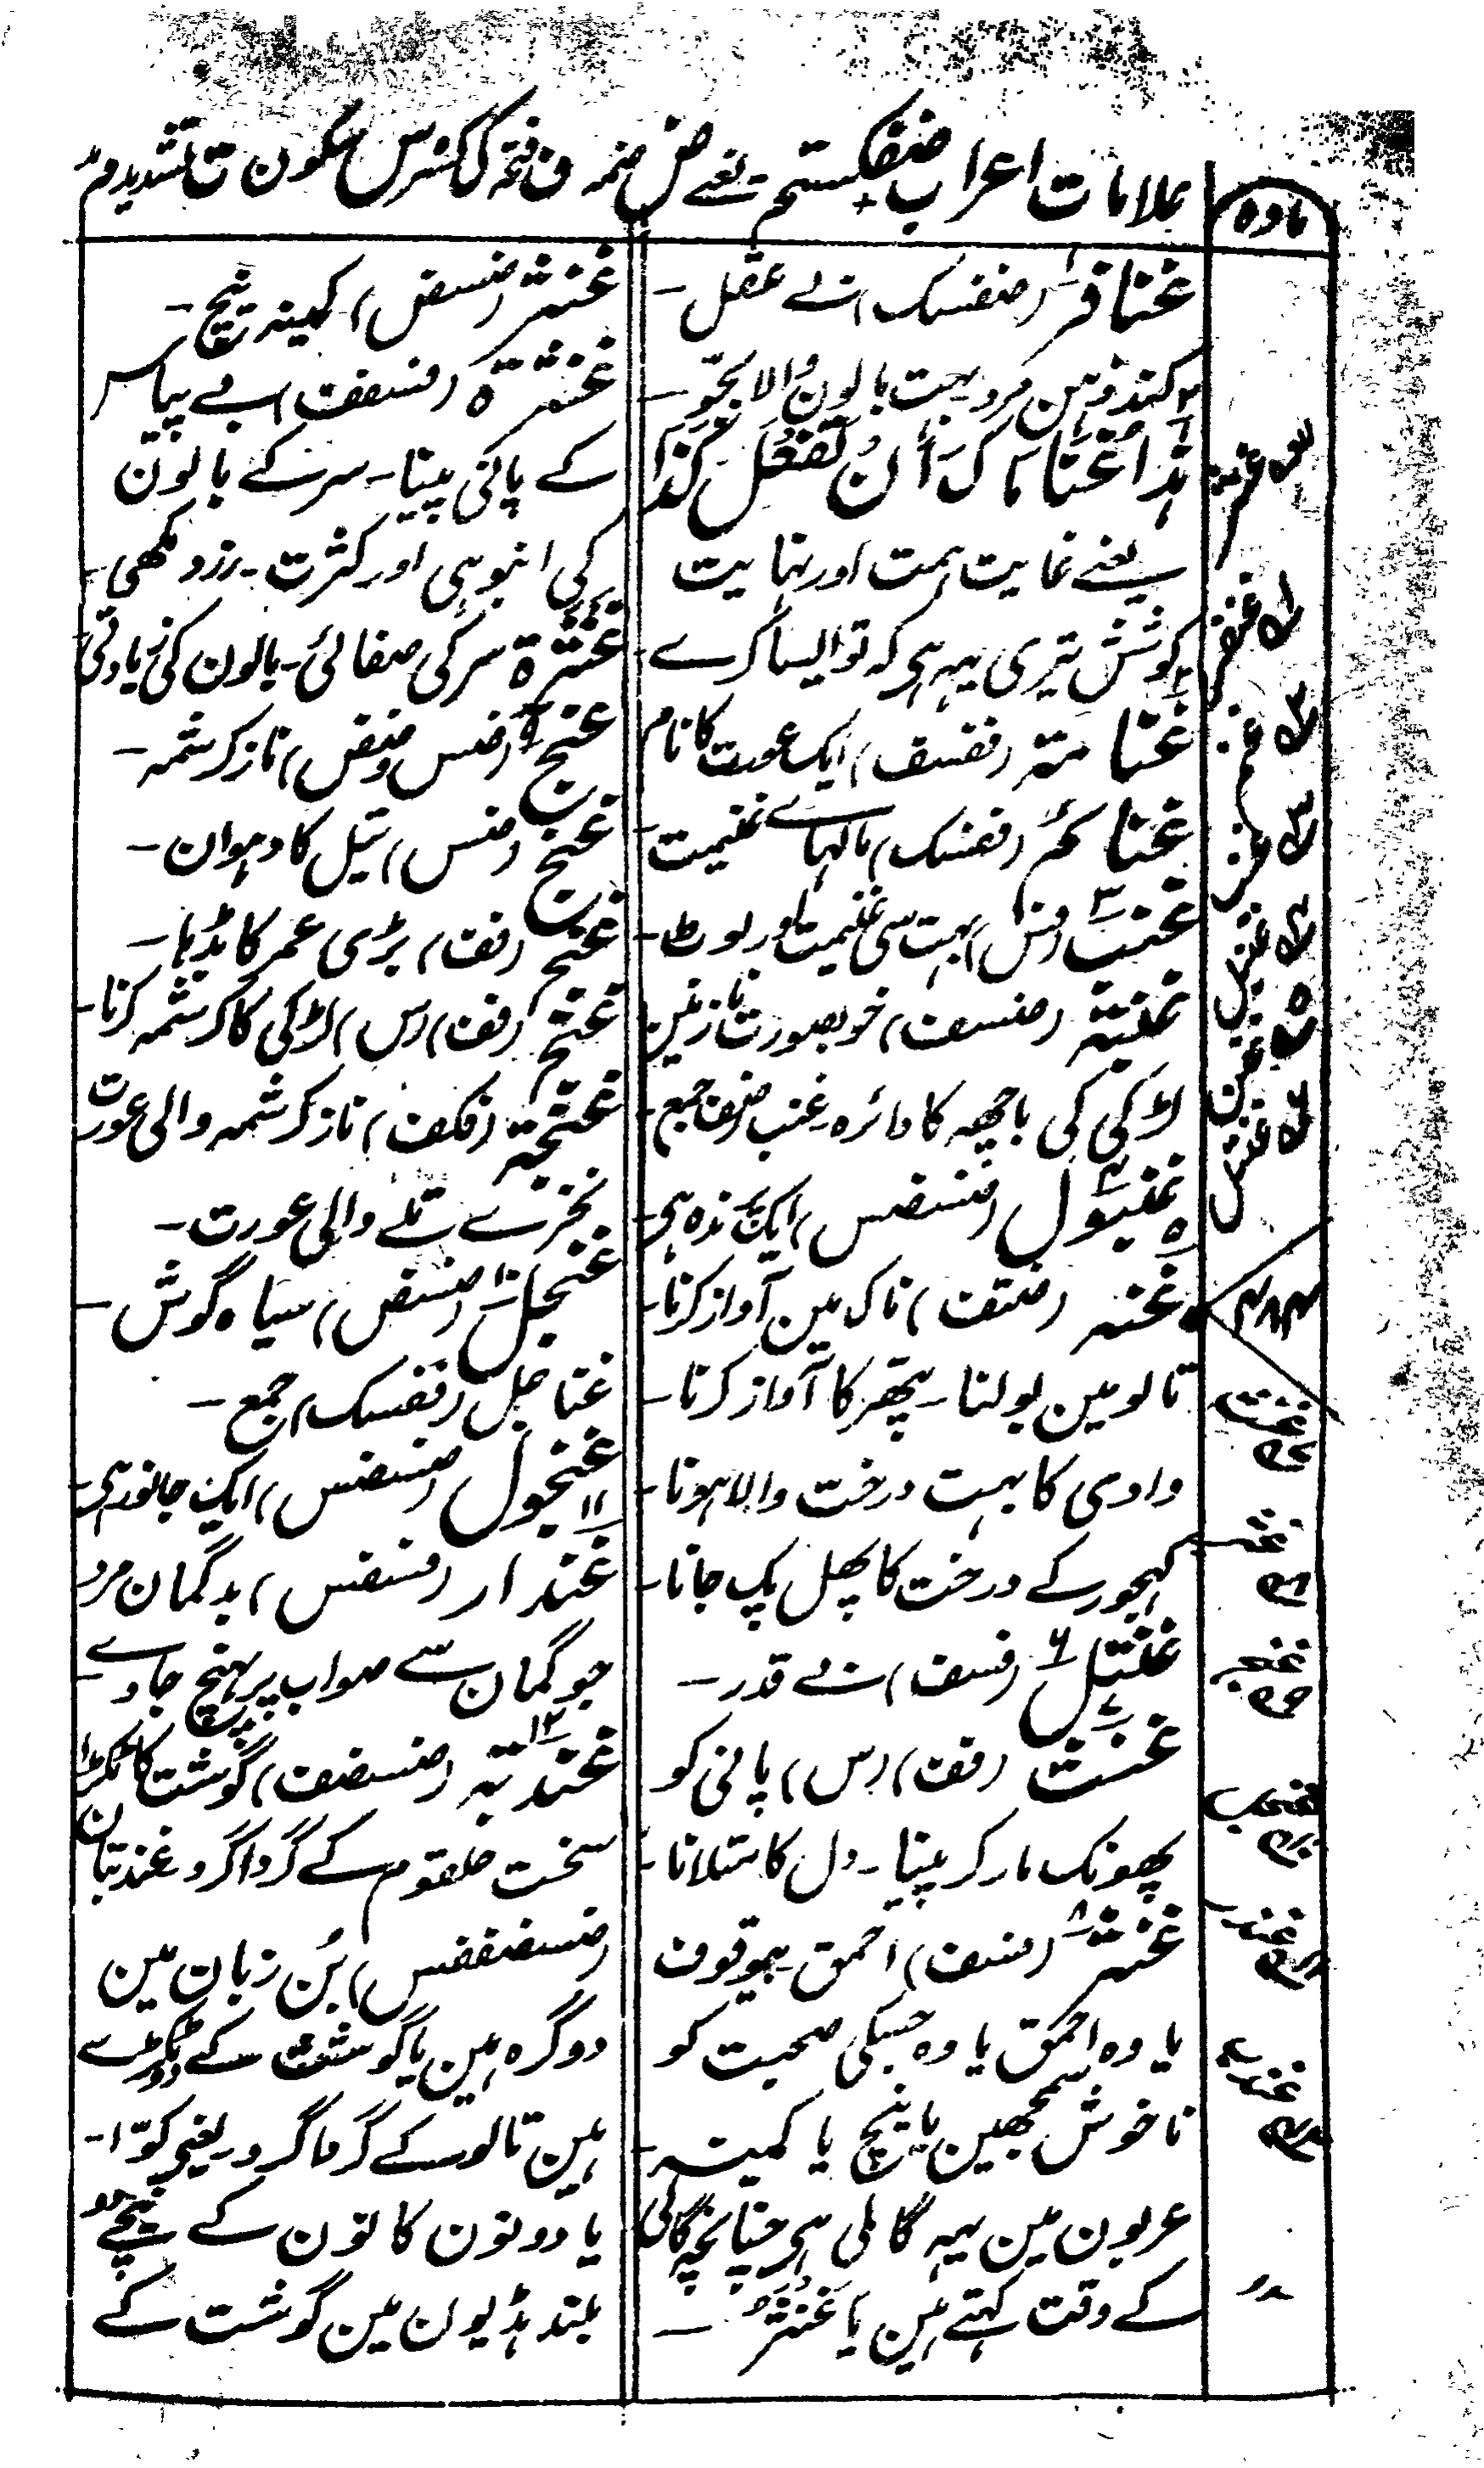 علامات اعراب ضفکستم یعنے ض ضمہ ف فتحہ ک کسر س سکون ت تشدید م
مادہ
غنافر (ضفسک) بے عقل -
کند ذہن مرد - بہت بالون والا بجّو -
ہٰذا غُنَامَاکَ أَنْ تَفْعَلَ کَذَا
یعنے غایت ہمت اور نہایت
کوشش تیری یہہ ہی کہ تو ایسا کرے -
غنامتہ (ففسف) ایک عورت کا نام
غنائم (ففسک) مالہاے غنیمت -
غنب (فس) بہت سی غنیمت اور لوٹ -
غنبتہ (ضسف) خوبصورت نازنین
لڑکی کی باچھہ کا دائرہ غنب ضف جمع -
غنبول (ضسضس) ایک پرندہ ہی -
غنہ (ضتف) ناک مین آواز کرنا -
تالو مین بولنا - پتھر کا آواز کرنا -
وادی کا بہت درخت والا ہونا -
کہجور کے درخت کا پھل پک جانا -
غنتل (فسف) بے قدر -
غنث (فف) (س) پانی کو
پھونک مار کر پینا - دل کا متلانا -
غنثر (ضسف) احمق بیوقوف
یا وہ احمق یا وہ جسکی صحبت کو
ناخوش سمجھین یا نیچ یا کمینہ -
عربون مین یہہ گالی ہی چنانچہ گالی
کے وقت کہتے ہین یا غُنْثَرُ -
غنثر (ضسفض) کمینہ نیچ -
غنثرۃ (فسففت) بے پیاس
کے پانی پینا - سر کے بالون
کی انبوہی اور کثرت - زرد مکھی -
غنثرۃ سر کی صفائی - بالون کی زیادتی
غنج (ضس وضفض) ناز کرشمہ -
غنج (ضس) تیل کا دہوان -
غنج (فف) بڑی عمر کا بڈہا -
غنج (فف) (س) لڑکی کا کرشمہ کرنا -
غنجتہ (فکف) ناز کرشمہ والی عورت
نخرے تلے والی عورت -
غنجل (ضسفض) سیاہ گوش -
غناجل (ففسک) جمع -
غنجول (ضسضس) ایک جانور ہی -
غندار (فسفس) بدگمان مرد
جو گمان سے صواب پر پہنچ جاوے -
غندبتہ (ضسضف) گوشت کا ٹکڑا
سخت حلقوم کے گرداگرد غندبتان
(ضسضففس) بُن زبان مین
دو گرہ ہین یا گوشت کے دو ٹکڑے
ہین تالو کے گرداگرد یعنی کوّا -
یا دونون کانون کے نیچے
بلند ہڈیون مین گوشت کے